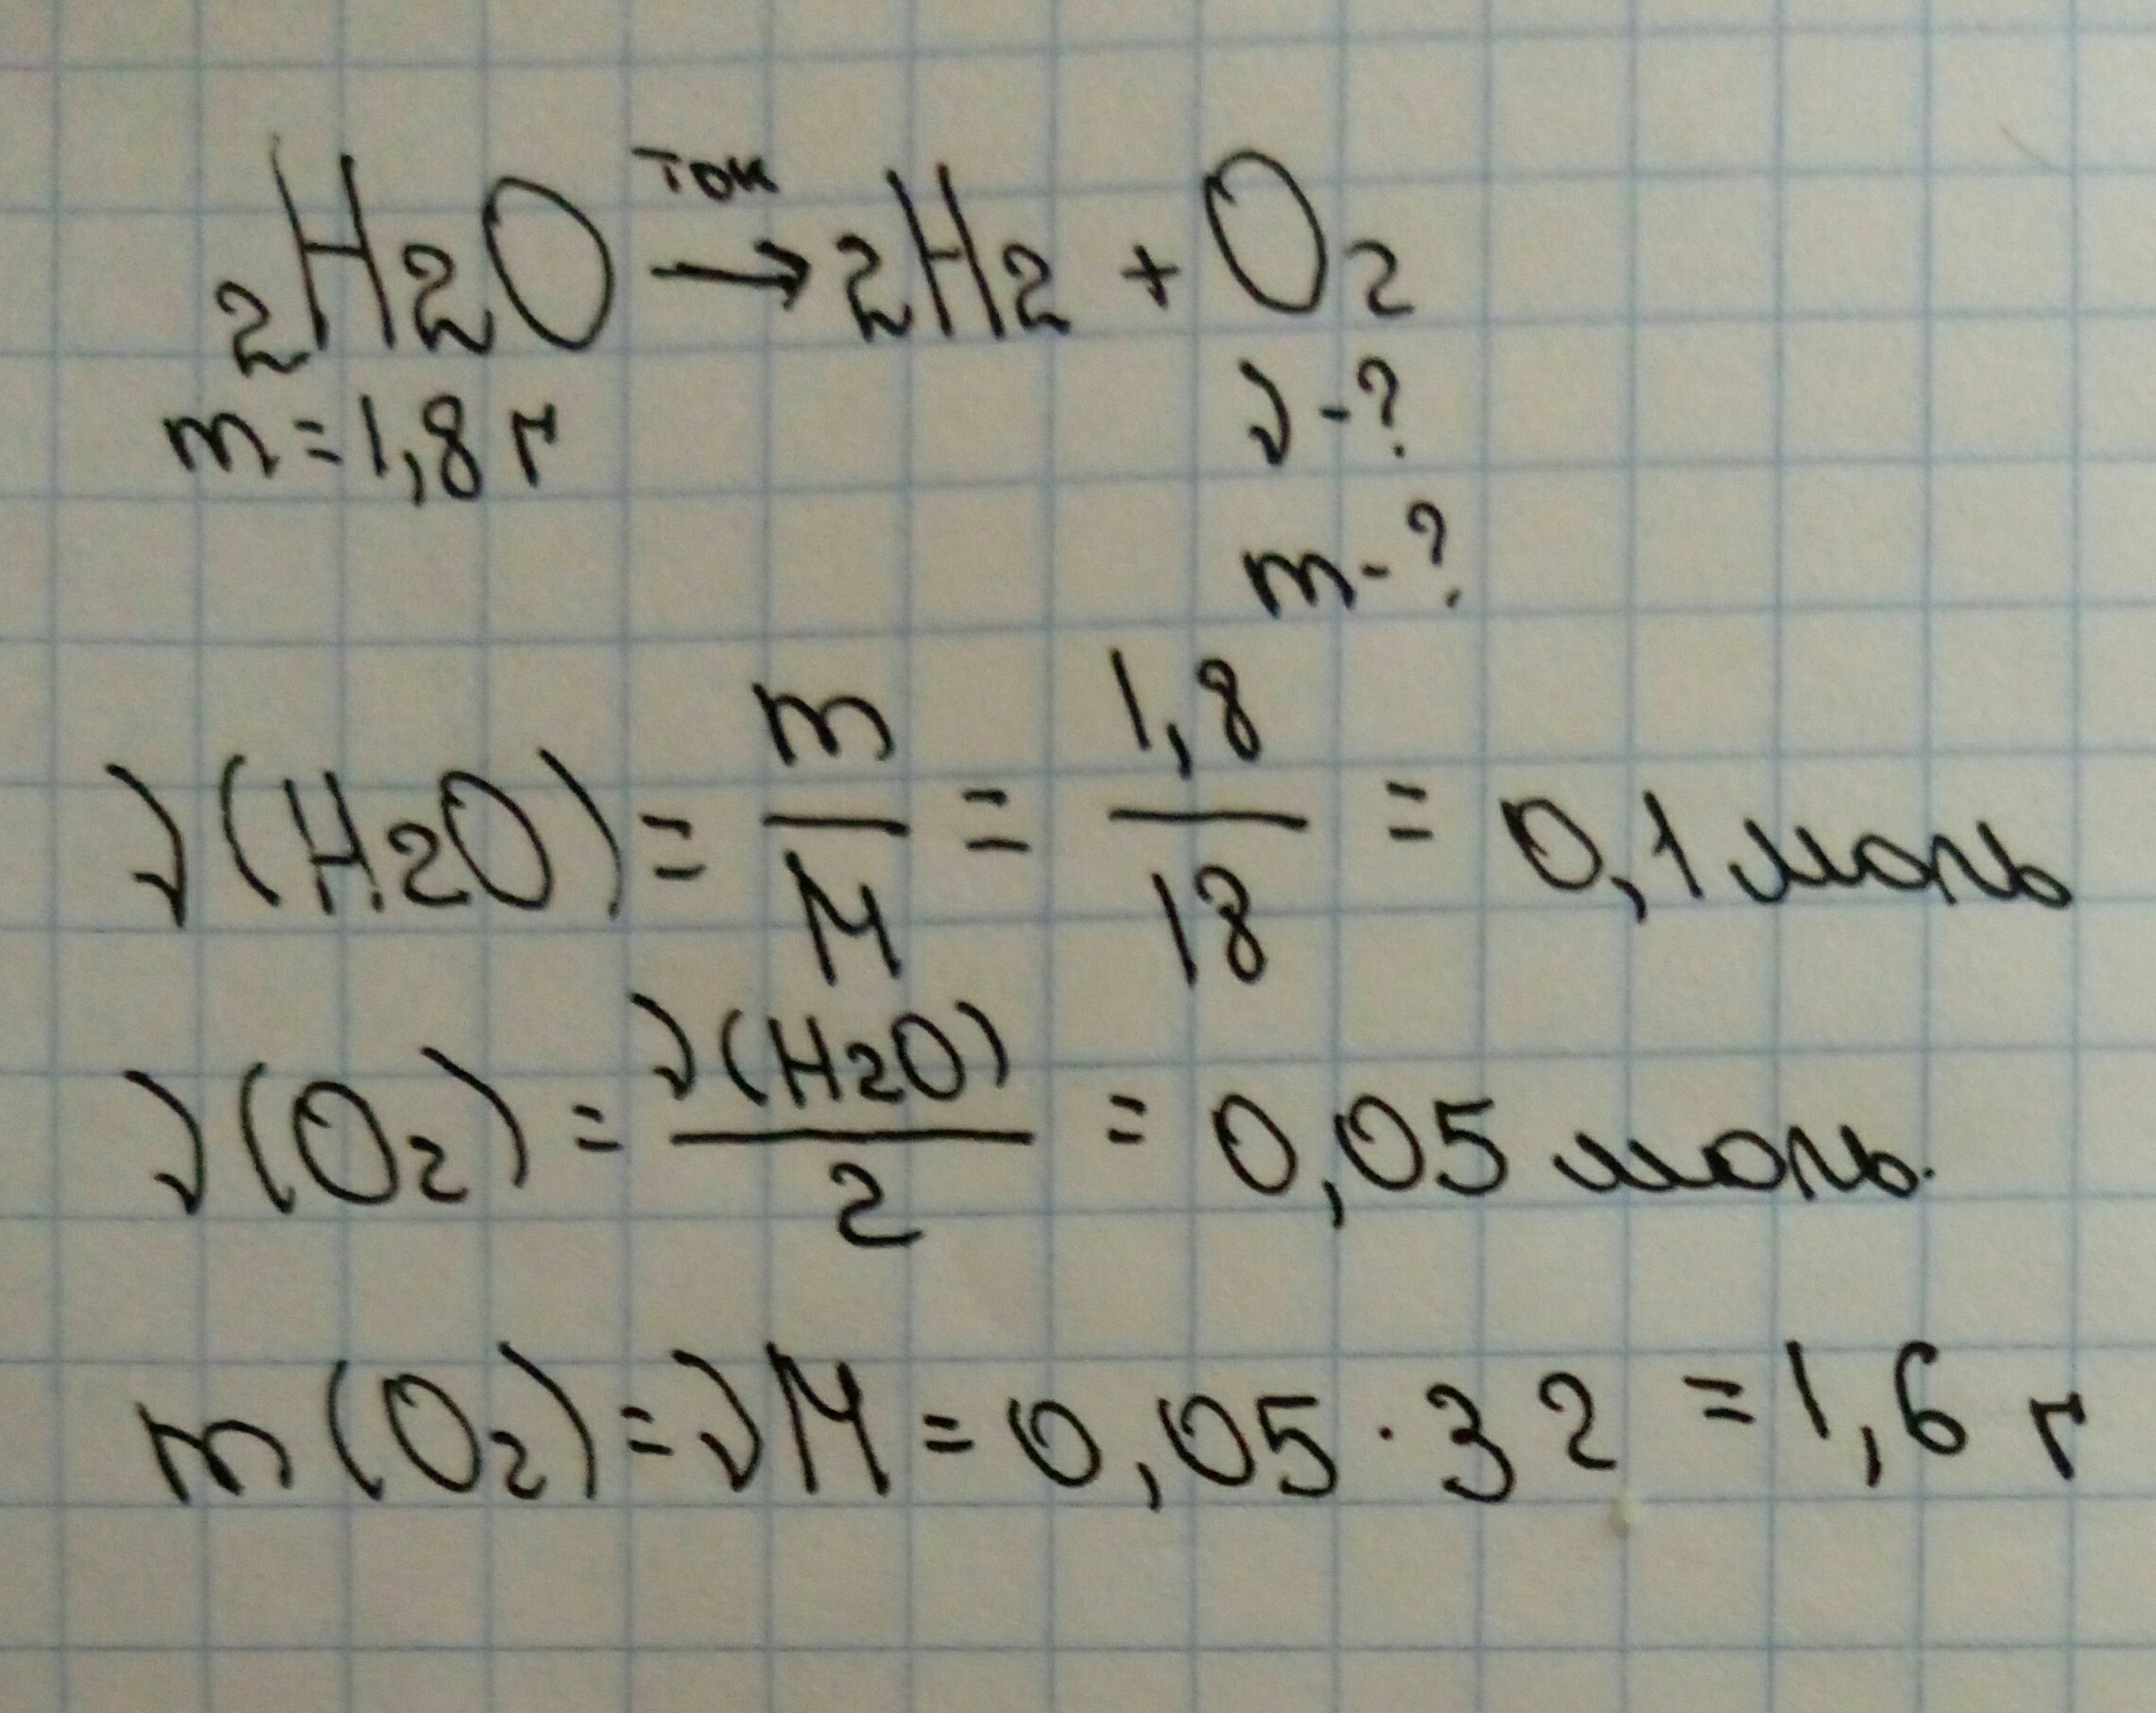 ток
2H2O → 2H2 + O2
m=1,8 г
ν-?
m-?
ν(H2O) = m/M = 1,8/18 = 0,1 моль
ν(O2) = ν(H2O)/2 = 0,05 моль.
m(O2) = νM = 0,05 · 32 = 1,6 г